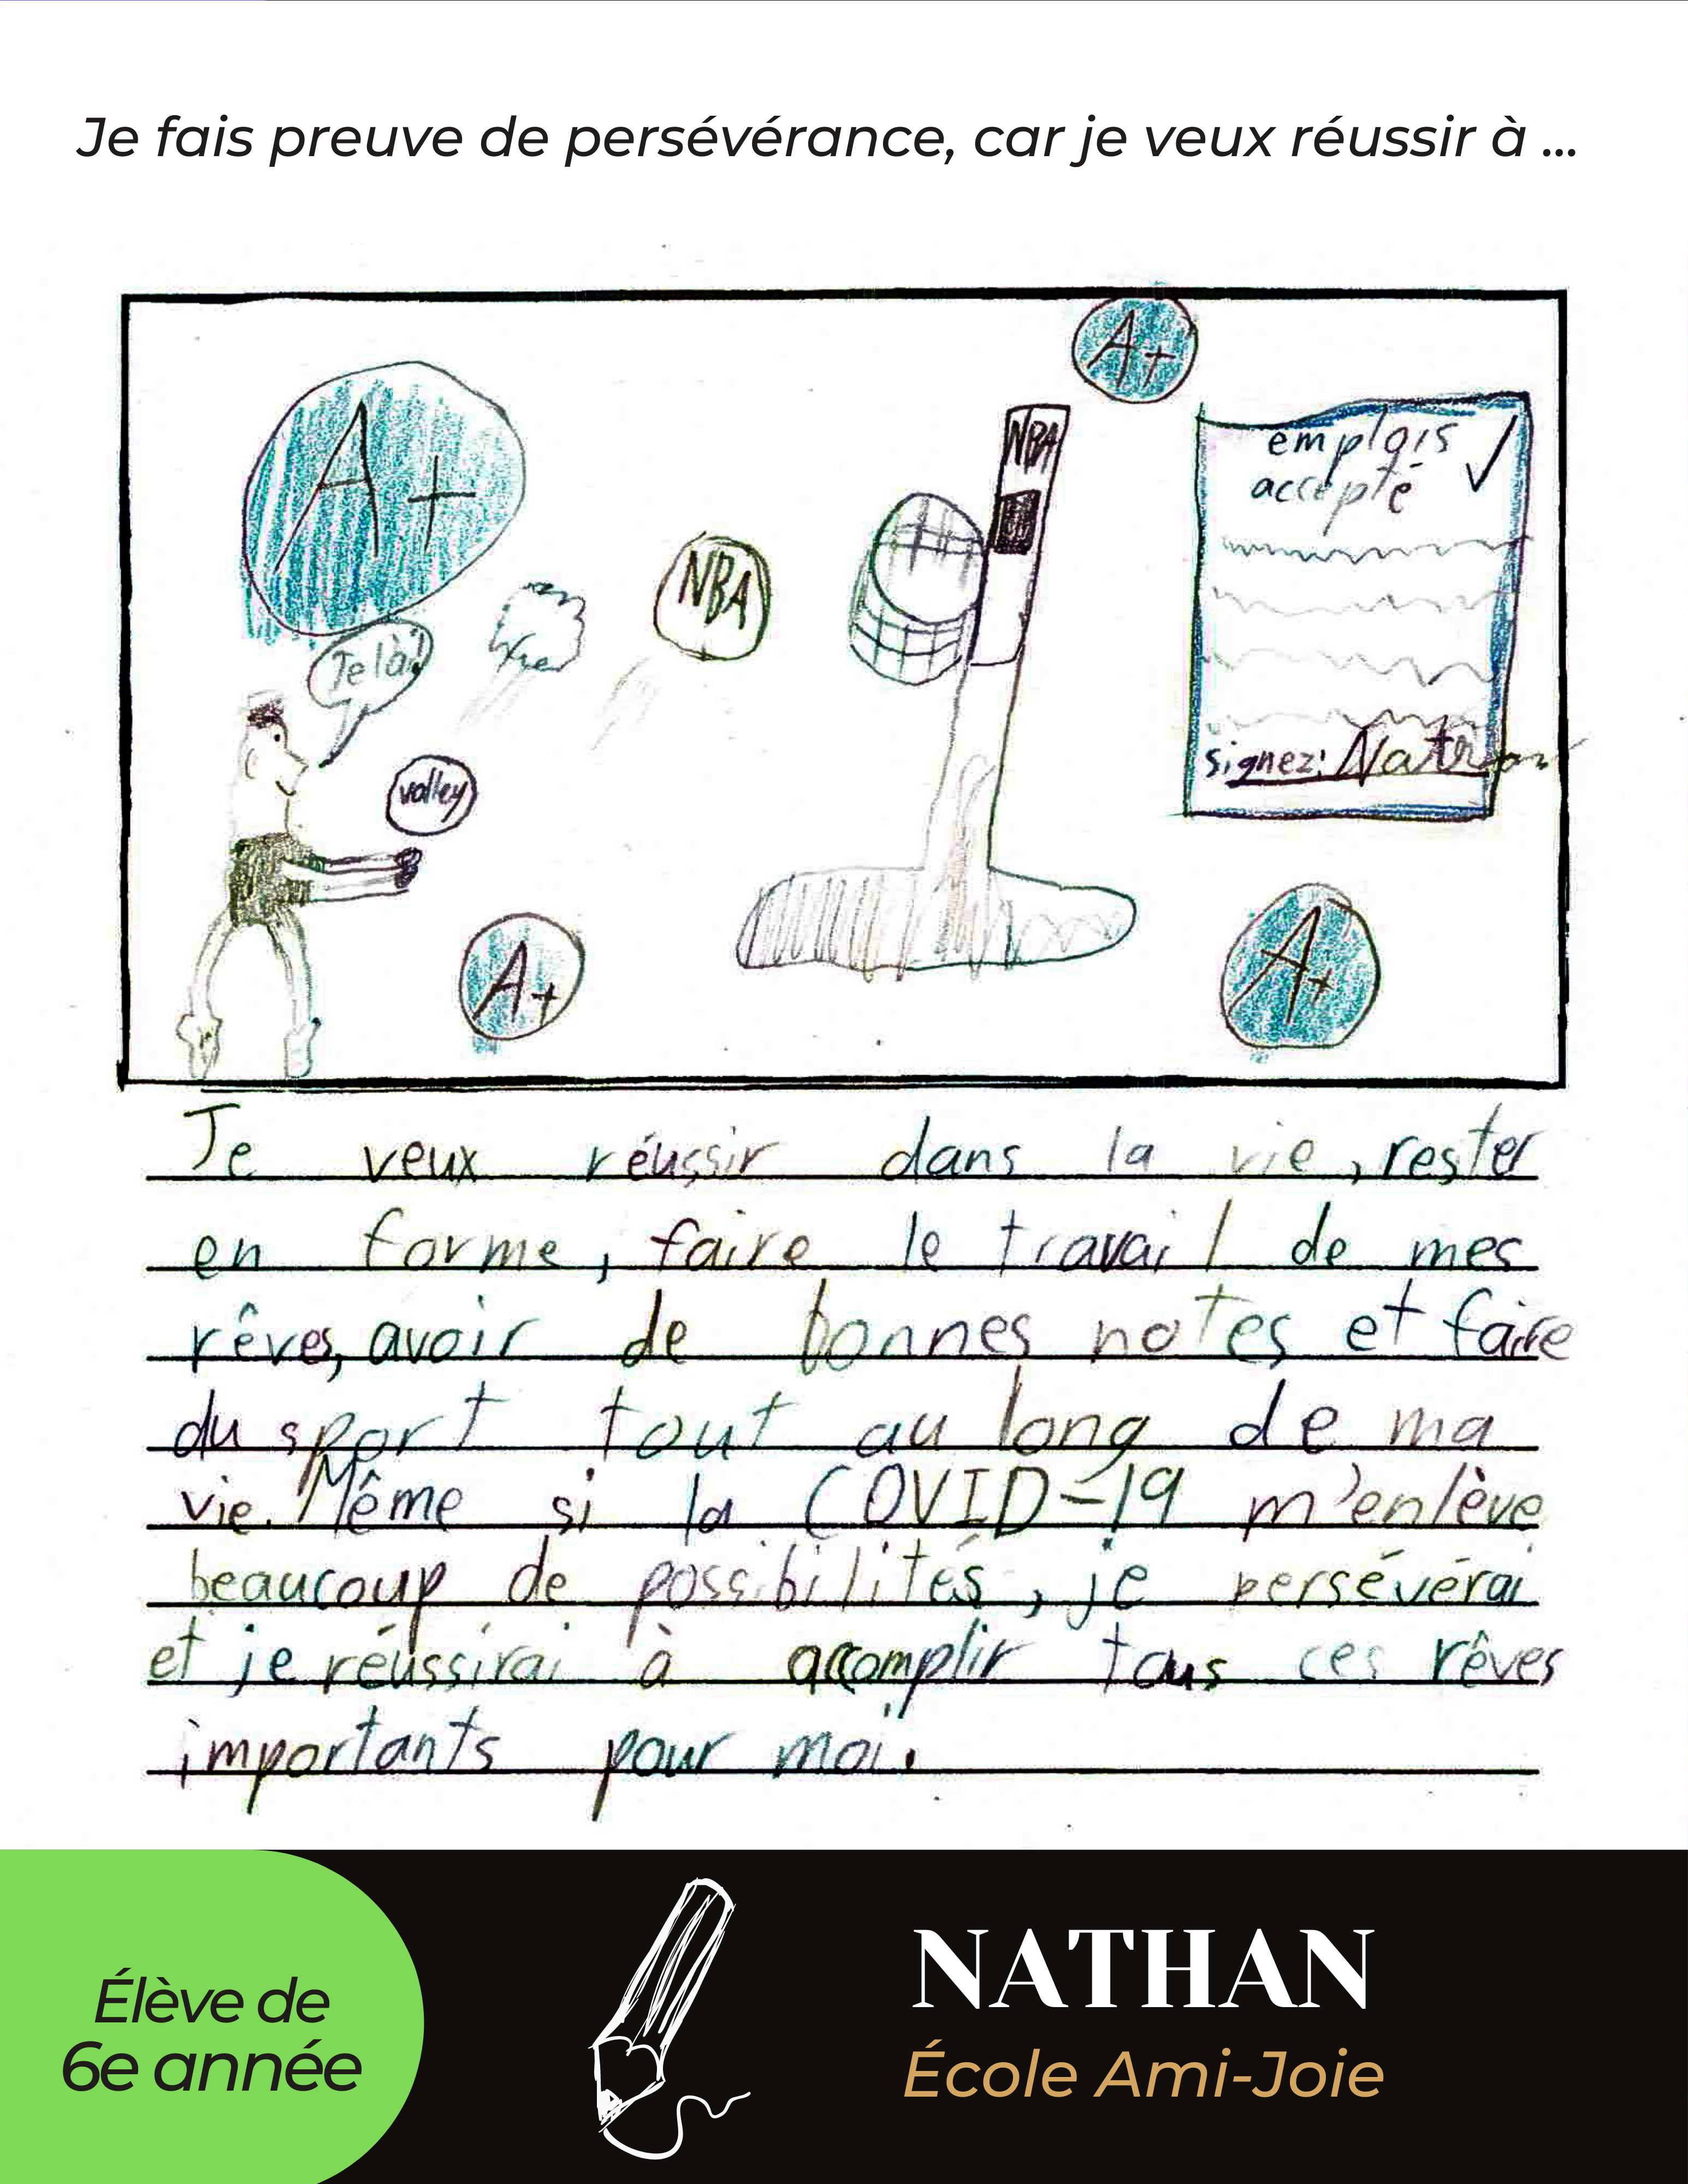 Je fais preuve de persévérance, car je veux réussir à ...
A+
A+
NBA
emplois
accepté
NBA
Je là!
volley
signez: Nathan
A+
A+
Je veux réussir dans la vie, rester
en forme, faire le travail de mes
rêves, avoir de bonnes notes et faire
du sport tout au long de ma
vie. Même si la COVID-19 m'enlève
beaucoup de possibilités, je persévérai
et je réussirai à accomplir tous ces rêves
importants pour moi.
Élève de
6e année
NATHAN
École Ami-Joie